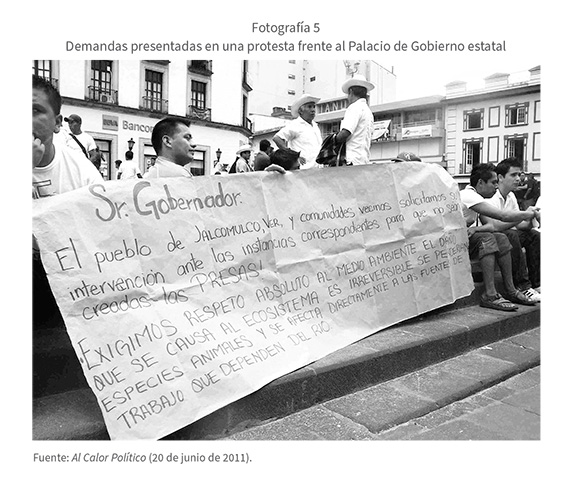 Fotografía 5
Demandas presentadas en una protesta frente al Palacio de Gobierno estatal
Banco
Sr. Gobernador.
El pueblo de JALCOMULCO, VER, y comunidades vecinas solicitamos su
intervención ante las instancias correspondientes para que no sean
creadas las PRESAS!
EXIGIMOS RESPETO ABSOLUTO AL MEDIO AMBIENTE EL DAÑO
QUE SE CAUSA AL ECOSISTEMA ES IRREVERSIBLE SE PERDERIAN
ESPECIES ANIMALES Y SE AFECTA DIRECTAMENTE A LAS FUENTE DE
TRABAJO QUE DEPENDEN DEL RIO
Fuente: Al Calor Político (20 de junio de 2011).